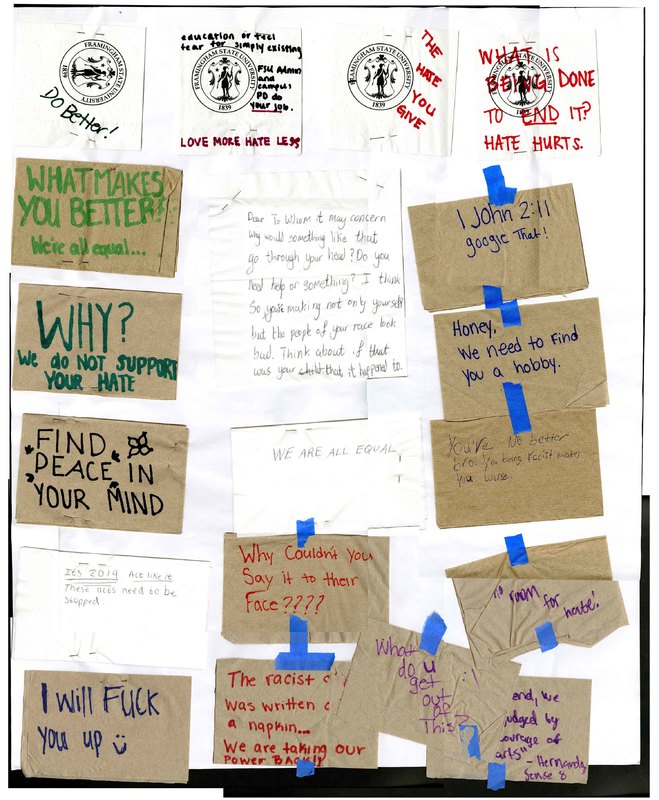 FRAMINGHAM STATE UNIVERSITY
1839
Do Better!
education or feel
fear for simply existing
FSU Admin
and
campus
PD do
your job.
FRAMINGHAM STATE UNIVERSITY
1839
LOVE MORE HATE LESS
FRAMINGHAM STATE UNIVERSITY
1839
THE
HATE
YOU
GIVE
FRAMINGHAM STATE UNIVERSITY
1839
WHAT IS
BEING DONE
TO END IT?
HATE HURTS.
WHAT MAKES
YOU BETTER?
We're all equal...
Dear To Whom it may concern
Why would something like that
go through your head? Do you
need help or something? I think
So you're making not only yourself
but the people of your race look
bad. Think about if that
was your child that it happened to.
1 John 2:11
google That!
WHY?
We do NOT SUPPORT
YOUR HATE
Honey,
We need to find
you a hobby.
FIND
PEACE IN
YOUR MIND
WE ARE ALL EQUAL
You're No better
bro. You being racist makes
you worse.
It's 2019 Act like it
These acts need to be
stopped
Why Couldn't You
Say it to their
Face????
no room for hate!
I Will FUCK
you up
The racist
was written
a napkin...
We are taking our
POWER BACK!!
What
do u
get
out
of
This?
:\
end, we
judged by
courage of
arts" - Hernando,
Sense 8